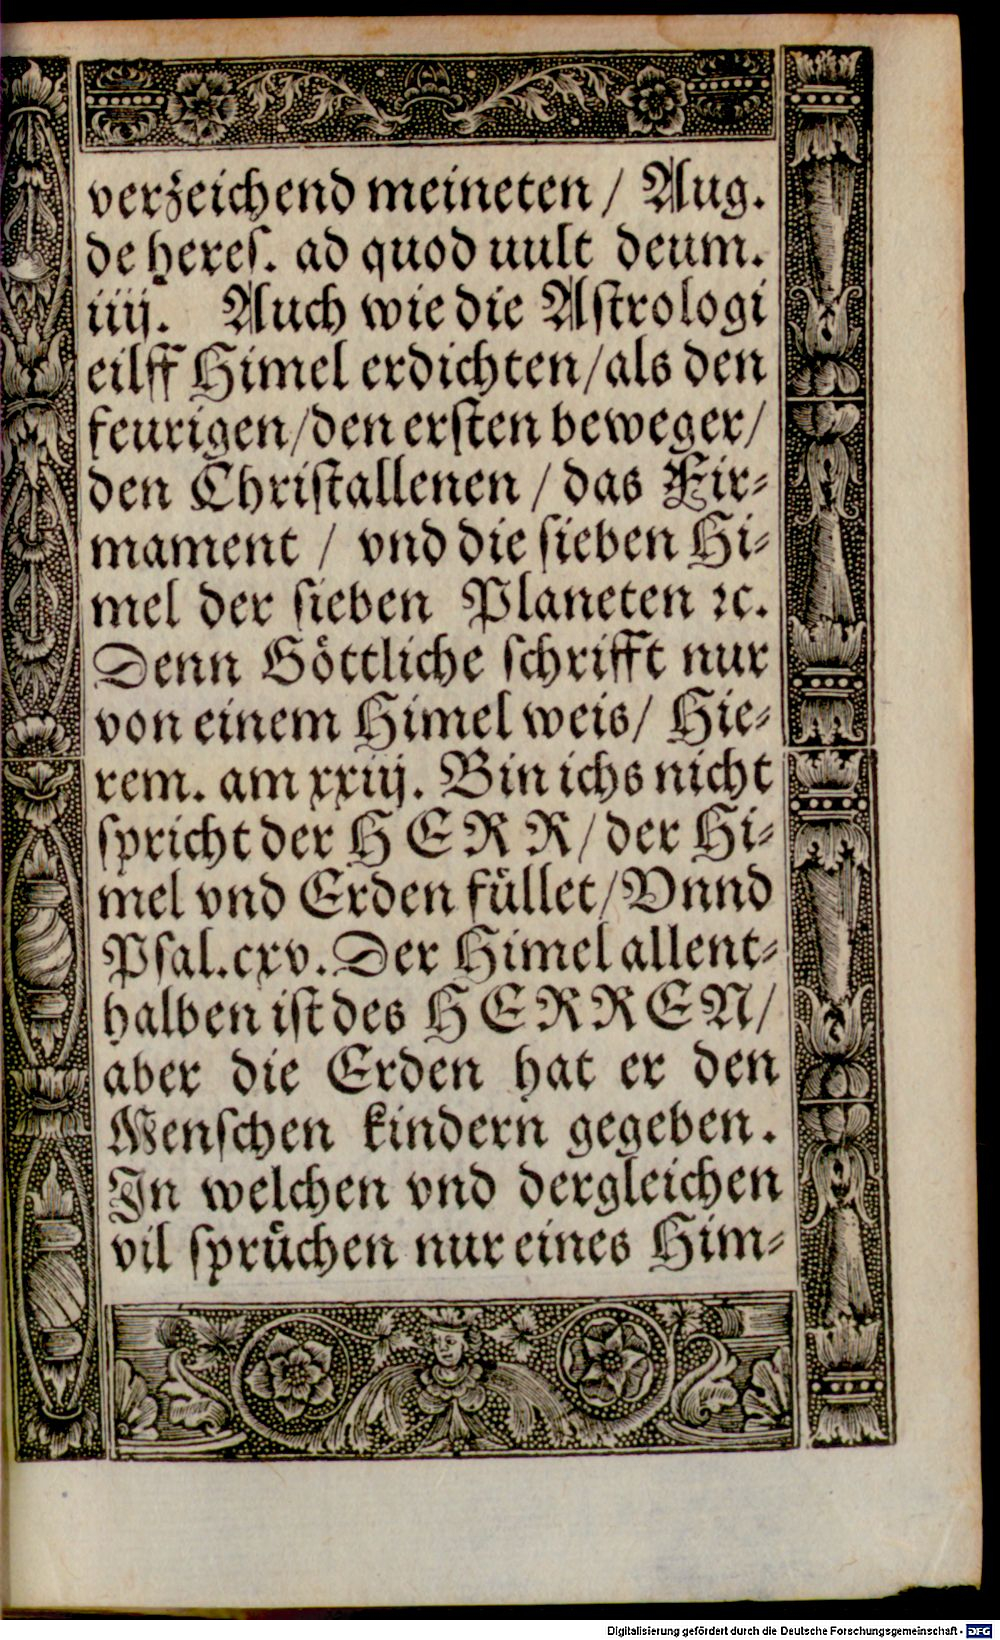 verzeichend meineten / Aug.
de heres. ad quod uult deum.
iiij. Auch wie die Astrologi
eilff Himel erdichten / als den
feurigen / den ersten beweger /
den Christallenen / das Fir⸗
mament / vnd die sieben Hi⸗
mel der sieben Planeten ꝛc.
Denn Göttliche schrifft nur
von einem Himel weis / Hie⸗
rem. am xxiij. Bin ichs nicht
spricht der HERR / der Hi⸗
mel vnd Erden füllet / Vnnd
Psal. cxv. Der Himel allent⸗
halben ist des HERREN /
aber die Erden hat er den
Menschen kindern gegeben.
In welchen vnd dergleichen
vil sprüchen nur eines Him⸗
Digitalisierung gefördert durch die Deutsche Forschungsgemeinschaft - DFG